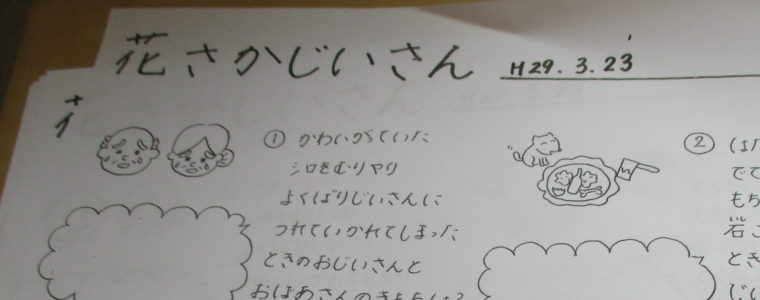 花さかじいさん
H29.3.23
① かわいがていた
シロをむりやり
よくばりじいさんに
つれていかれてしまった
ときのおじいさんと
おばあさんのきもちは?
②
でて
もち
岩こ
とき
じい